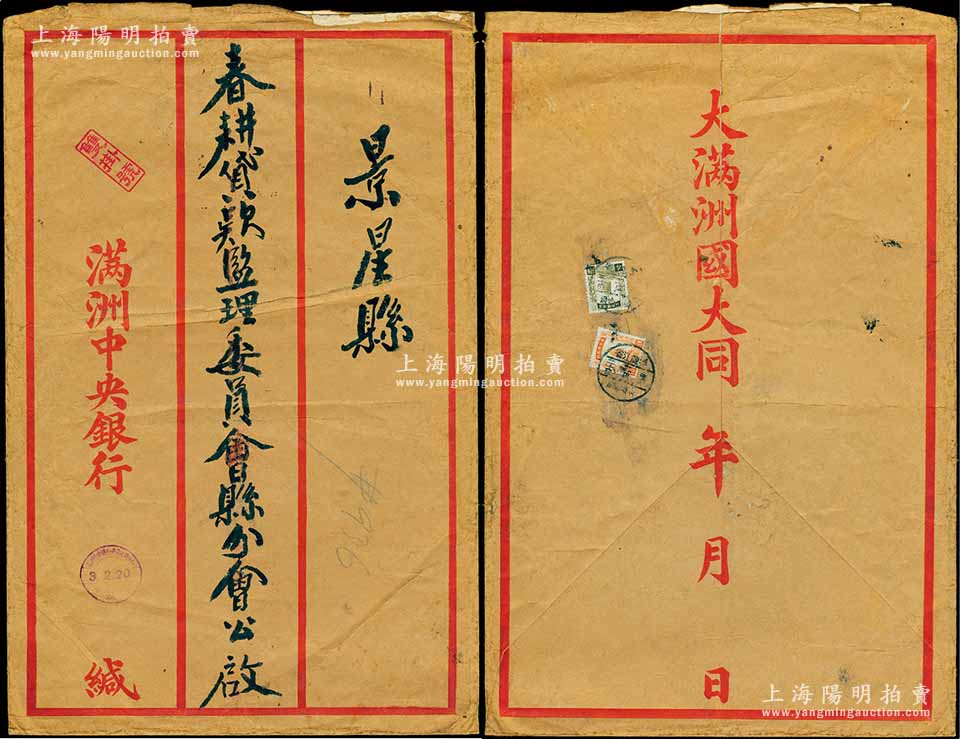 上海陽明拍賣
www.yangmingauction.com
景星縣
春耕貸款監理委員會縣分會公啟
雙掛號
满洲中央銀行
3.2.20
緘
上海陽明拍賣
www.yangmingauction.com
大满洲國大同
年
月
日
上海陽明拍賣
www.yangmingauction.com